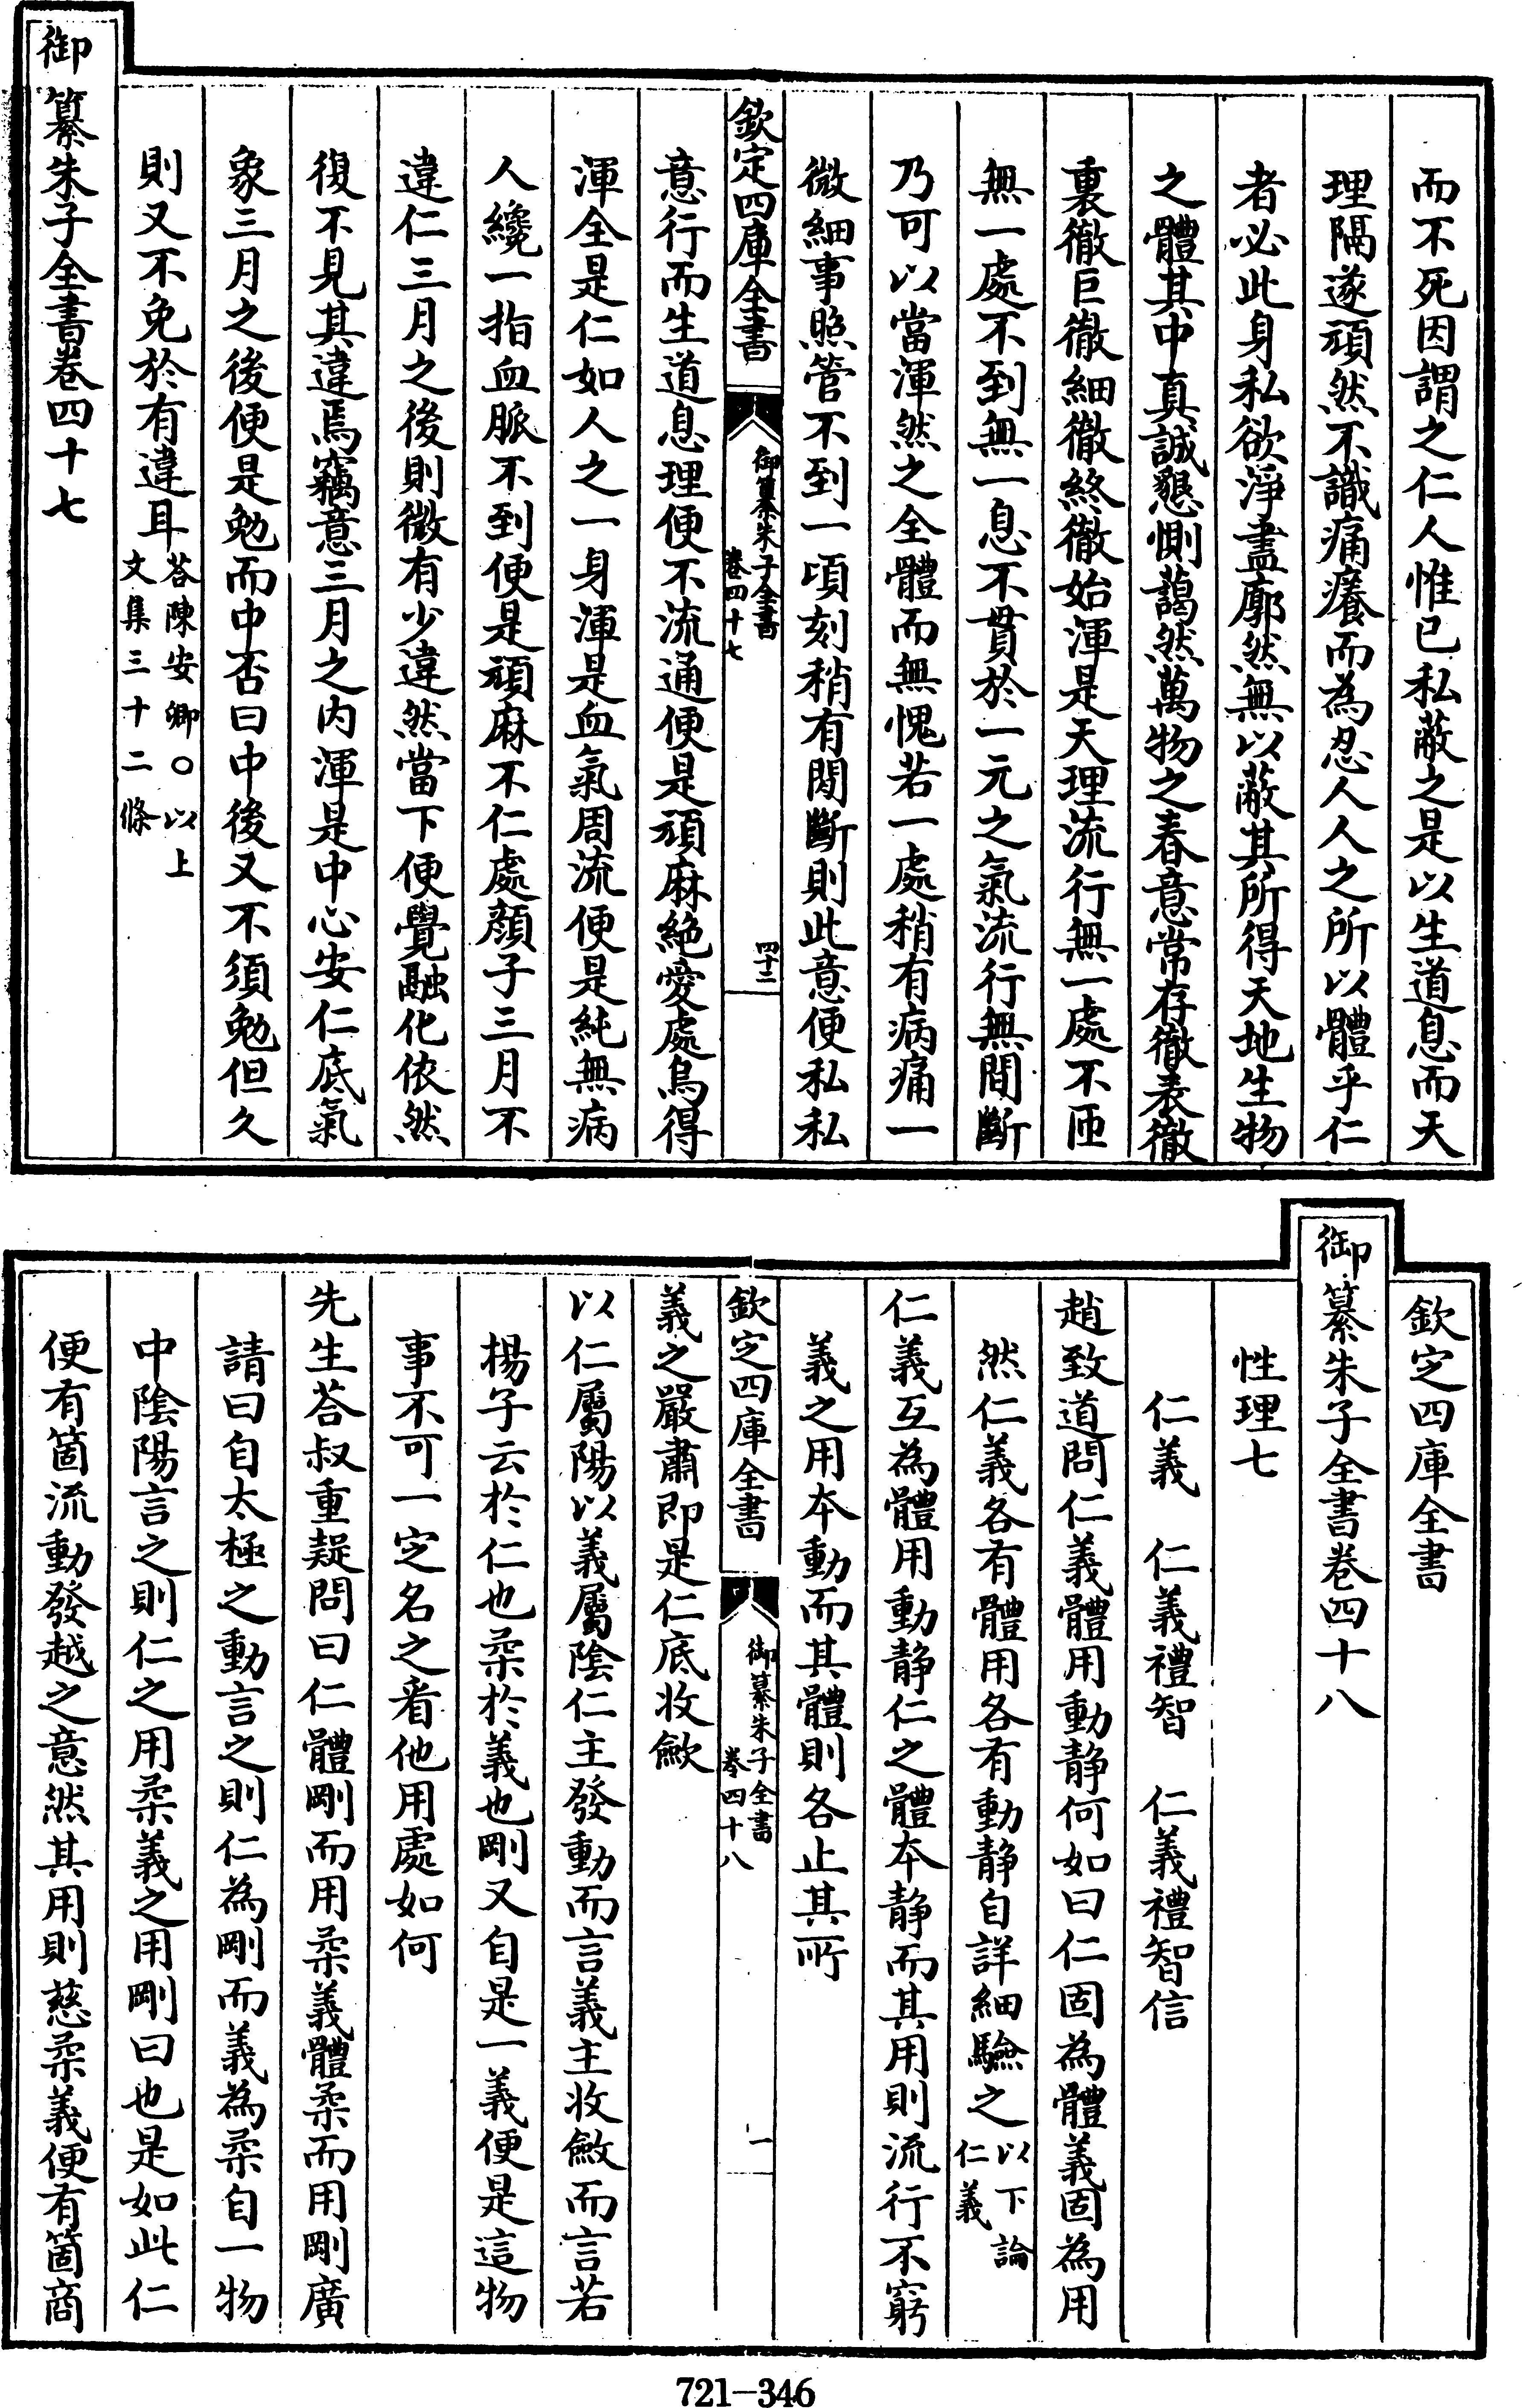 而不死因謂之仁人惟已私蔽之是以生道息而天
理隔遂頑然不識痛癢而為忍人人之所以體乎仁
者必此身私欲淨盡廓然無以蔽其所得天地生物
之體其中真誠懇惻藹然萬物之春意常存徹表徹
裏徹巨徹細徹終徹始渾是天理流行無一處不匝
無一處不到無一息不貫於一元之氣流行無間斷
乃可以當渾然之全體而無愧若一處稍有病痛一
微細事照管不到一頃刻稍有間斷則此意便私私
欽定四庫全書
御纂朱子全書
卷四十七
四十二
意行而生道息理便不流通便是頑麻絶愛處烏得
渾全是仁如人之一身渾是血氣周流便是純無病
人纔一指血脈不到便是頑麻不仁處顔子三月不
違仁三月之後則微有少違然當下便覺融化依然
復不見其違焉竊意三月之内渾是中心安仁底氣
象三月之後便是勉而中否曰中後又不須勉但久
則又不免於有違耳
荅陳安卿○以上
文集三十二條
御纂朱子全書卷四十七
欽定四庫全書
御纂朱子全書卷四十八
性理七
仁義 仁義禮智 仁義禮智信
趙致道問仁義體用動静何如曰仁固為體義固為用
然仁義各有體用各有動静自詳細驗之
以下論
仁義
仁義互為體用動静仁之體本静而其用則流行不窮
義之用本動而其體則各止其所
欽定四庫全書
御纂朱子全書
卷四十八
一
義之嚴肅即是仁底收歛
以仁屬陽以義屬陰仁主發動而言義主收斂而言若
楊子云於仁也柔於義也剛又自是一義便是這物
事不可一定名之看他用處如何
先生荅叔重疑問曰仁體剛而用柔義體柔而用剛廣
請曰自太極之動言之則仁為剛而義為柔自一物
中陰陽言之則仁之用柔義之用剛曰也是如此仁
便有箇流動發越之意然其用則慈柔義便有箇商
721-346